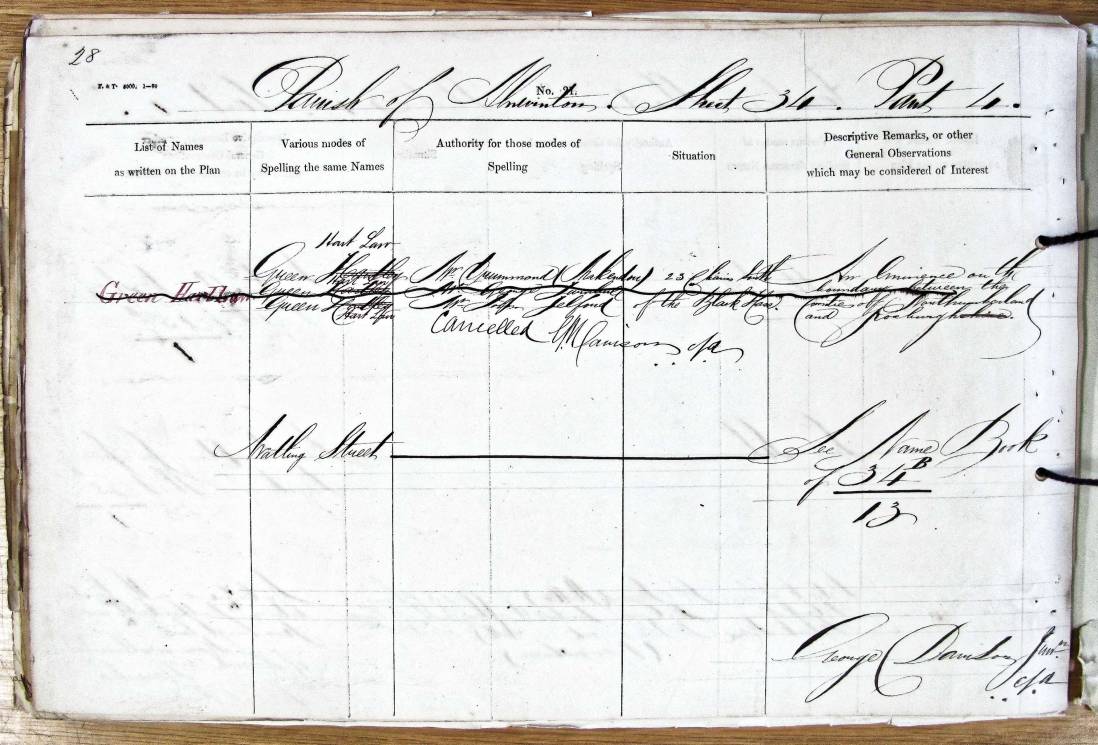 28
No. 21.
Parish of Alwinton. Sheet 34. Part 4.
List of Names
as written on the Plan
Various modes of
Spelling the same Names
Authority for those modes of
Spelling
Situation
Descriptive Remarks, or other
General Observations
which may be considered of Interest
Hart Law
Green Hartlaw
Queen
Queen
Queen
Mr. Drummond (Makendon)
Mr. George
Mr. John Telford
23 Chains South
of the Black Knowe.
An Eminence on the
boundary between the
Counties of Northumberland
and Roxburgh
Cancelled G Davison c/a
Watling Street
See Name Book
of 34 B
13
George Davison Junr.
c/a